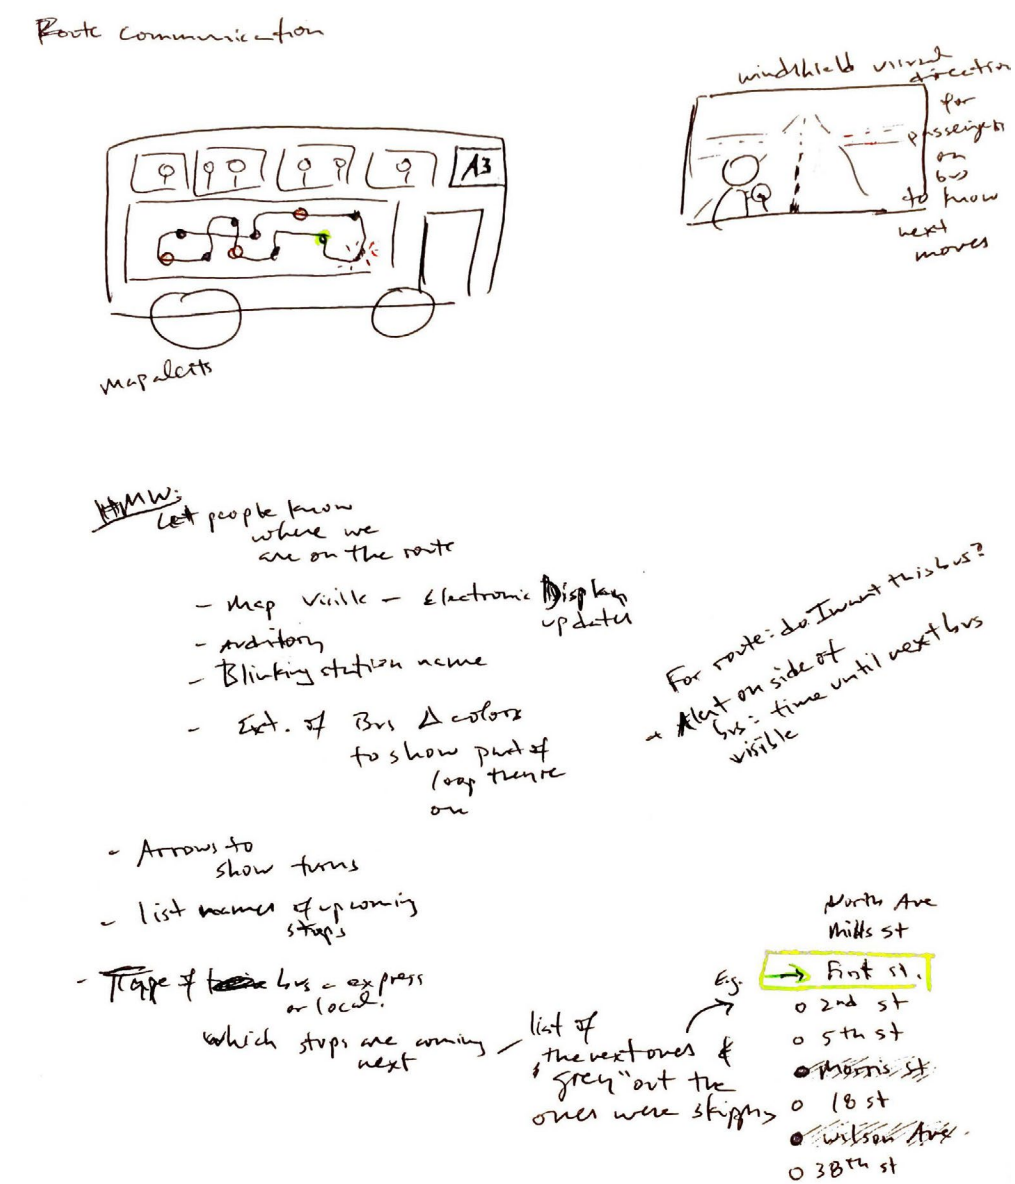 Route communication
windshield visual
direction
for
passengers
on
bus
to know
next
moves
A3
map alerts
HMW:
Let people know
where we
are on the route
- Map visible - Electronic Display
updates
- Auditory
- Blinking station name
- Ext. of Bus Δ colors
to show part of
loop they're
on
For route: do I want this bus?
Alert on side of
bus: time until next bus
visible
- Arrows to
show turns
- list names of upcoming
stops
- Type of bus - express
or local.
which stops are coming
next
list of
the next ones &
"grey" out the
ones were skipping
E.g.
North Ave
Mills st
→ First st.
2nd st
5th st
Morris st
18 st
Wilson Ave.
38th st